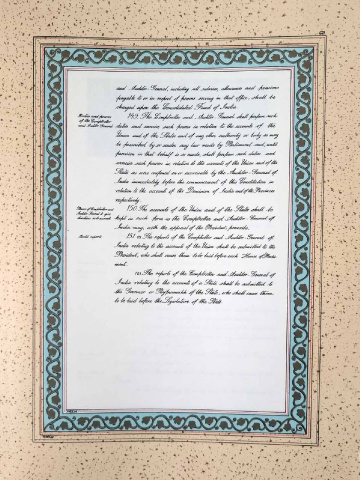 and Auditor General, including all salaries, allowances and pensions
payable to or in respect of persons serving in that office, shall be
charged upon the Consolidated Fund of India.
Duties and powers
of the Comptroller
and Auditor-General.
149. The Comptroller and Auditor General shall perform such
duties and exercise such powers in relation to the accounts of the
Union and of the States and of any other authority or body as may
be prescribed by or under any law made by Parliament and, until
provision in that behalf is so made, shall perform such duties and
exercise such powers in relation to the accounts of the Union and of the
States as were conferred on or exercisable by the Auditor-General of
India immediately before the commencement of this Constitution in
relation to the accounts of the Dominion of India and of the Provinces
respectively.
150. The accounts of the Union and of the States shall be
kept in such form as the Comptroller and Auditor General of
India may, with the approval of the President, prescribe.
Audit reports.
151. (1) The reports of the Comptroller and Auditor General of
India relating to the accounts of the Union shall be submitted to the
President, who shall cause them to be laid before each House of Parlia-
ment.
(2) The reports of the Comptroller and Auditor-General of
India relating to the accounts of a State shall be submitted to
the Governor or Rajpramukh of the State, who shall cause them
to be laid before the Legislature of the State.